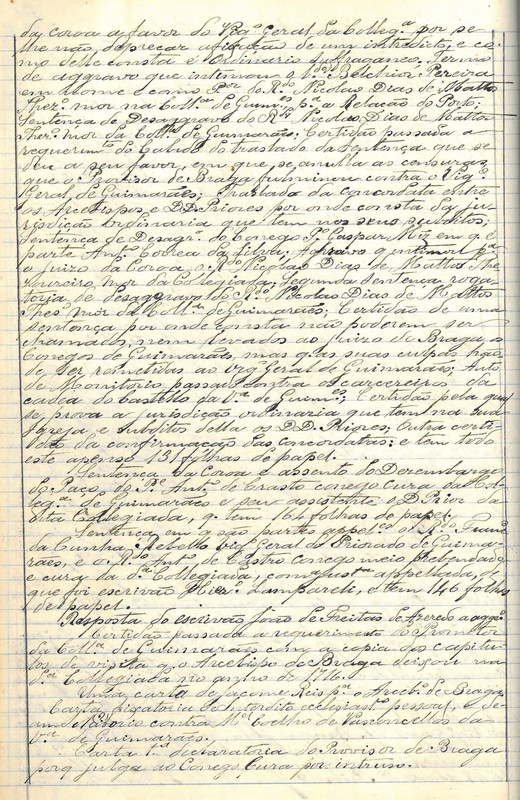 da coroa a favor do Vigº Geral da Collegª por se
lhe não deprecar a fixação de um interdicto, e co-
mo delle consta é Ordinario suffraganeo. Termo
de aggravo que intimou q Belchior Pereira
em nome e como Pºr do Rdo Nicolau Dias de Mattos
Thezrº mor na Collª de Guimes pª a Relação do Porto;
Sentença de Desaggravo do Rdo Nicolau Dias de Mattos
Thezrº mor da Collª de Guimarães; Certidão passada a
requerimtº do Cabido do traslado da sentença que se
deu a seu favor, em que se annulla as censuras,
que o Provisor de Braga fulminou contra o Vigº
Geral de Guimarães; Traslado da concordata entre
os Arcebispos e DD. Priores por onde consta da ju-
risdição ordinaria que tem nos seus subditos;
Sentença de Desagrº do Conego Pº Gaspar Miz em q é
parte Antº Corrêa da Silva; Aggravo q intimou pª
o juizo da Coroa o Rdo Nicolau Dias de Mattos The-
zoureiro mor da Collegiada; Segunda sentença roga-
toria de desaggravo do Rdo Nicolau Dias de Mattos
Thesº mór da Collª de Guimarães; Certidão de uma
sentença por onde consta não poderem ser
chamados, nem levados ao juizo de Braga, os
Conegos de Guimarães, mas q as suas culpas hão
de ser remettidas ao Vigº Geral de Guimarães; Auto
de Monitorio passado contra o carcereiro da
cadea do Castello da Vª de Guimes; Certidão pela qual
se prova a jurisdição ordinaria que tem na sua
Igreja e subditos della os DD. Priores; Outra certi-
dão da confirmação das concordatas: e tem todo
este apenso 131 folhas de papel.
Sentença da Coroa e assento do Desembargo
do Paço do Pº Antº de Crasto conego cura da Col-
legª de Guimarães e seu assistente o D. Prior da
dita Collegiada, q. tem 164 folhas de papel.
Sentença em q são partes appelº o Franco
da Cunha Rebello Vigº Geral do Priorado de Guima-
rães, e o Rdo Antº de Castro conego meio prebendado
e cura da dª Collegiada, com a justª appellada, de
que foi escrivão Lampareli, e tem 146 folhas
de papel.
Resposta do escrivão João de Freitas de Azeredo a aggº
Certidão passada a requerimento do Promotor
da Collª de Guimarães com a copia dos capitu-
los de visita q. o Arcebispo de Braga deixou na
dª Collegiada no anno de 1716.
Uma carta de Reis pª o Arcebº de Braga
Carta fixatoria de interdito ecclesiastº pessoal, e de-
contra Mel Coelho de Vasconcellos da
Vª de Guimarães.
Carta 1ª declaratoria do Provisor de Braga
porq julga ao Conego Cura por intruso.